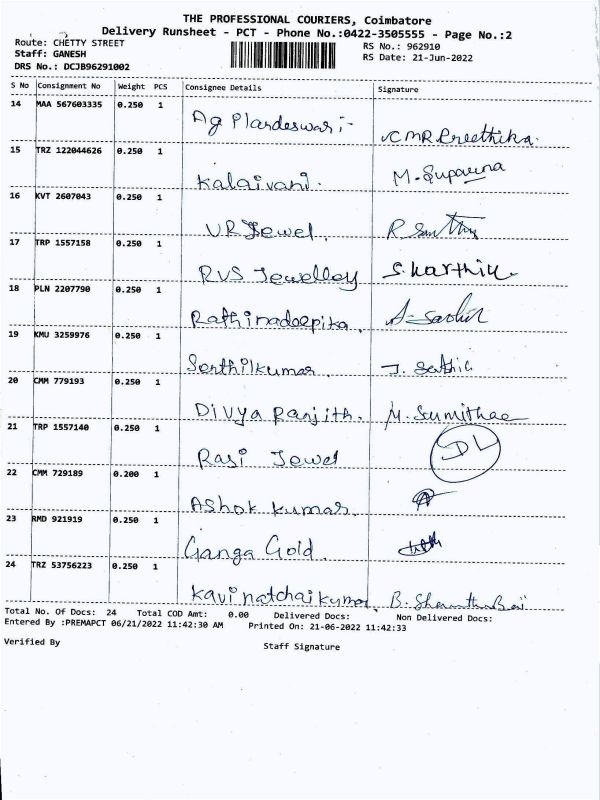 THE PROFESSIONAL COURIERS, Coimbatore
Delivery Runsheet - PCT - Phone No.:0422-3505555 - Page No.:2
Route: CHETTY STREET
RS No.: 962910
Staff: GANESH
RS Date: 21-Jun-2022
DRS No.: DCJB96291002
S No Consignment No Weight PCS Consignee Details Signature
14 MAA 567603335 0.250 1 Ag
15 TRZ 122044626 0.250 1 Kalaivani. M. Suparna
16 KVT 2607043 0.250 1 VR Jewel.
17 TRP 1557158 0.250 1 RVS Jewelley S. Karthik
18 PLN 2207790 0.250 1 Rathinadeepika.
19 KMU 3259976 0.250 1 Senthilkumar.
20 CMM 779193 0.250 1 Divya Ranjith. M. Sumithae
21 TRP 1557140 0.250 1 Rasi Jewel DL
22 CMM 729189 0.200 1 Ashok kumar.
23 RMD 921919 0.250 1 Ganga Gold.
24 TRZ 53756223 0.250 1 Kavinatchaikumar.
Total No. Of Docs: 24 Total COD Amt: 0.00 Delivered Docs: Non Delivered Docs:
Entered By :PREMAPCT 06/21/2022 11:42:30 AM Printed On: 21-06-2022 11:42:33
Verified By
Staff Signature